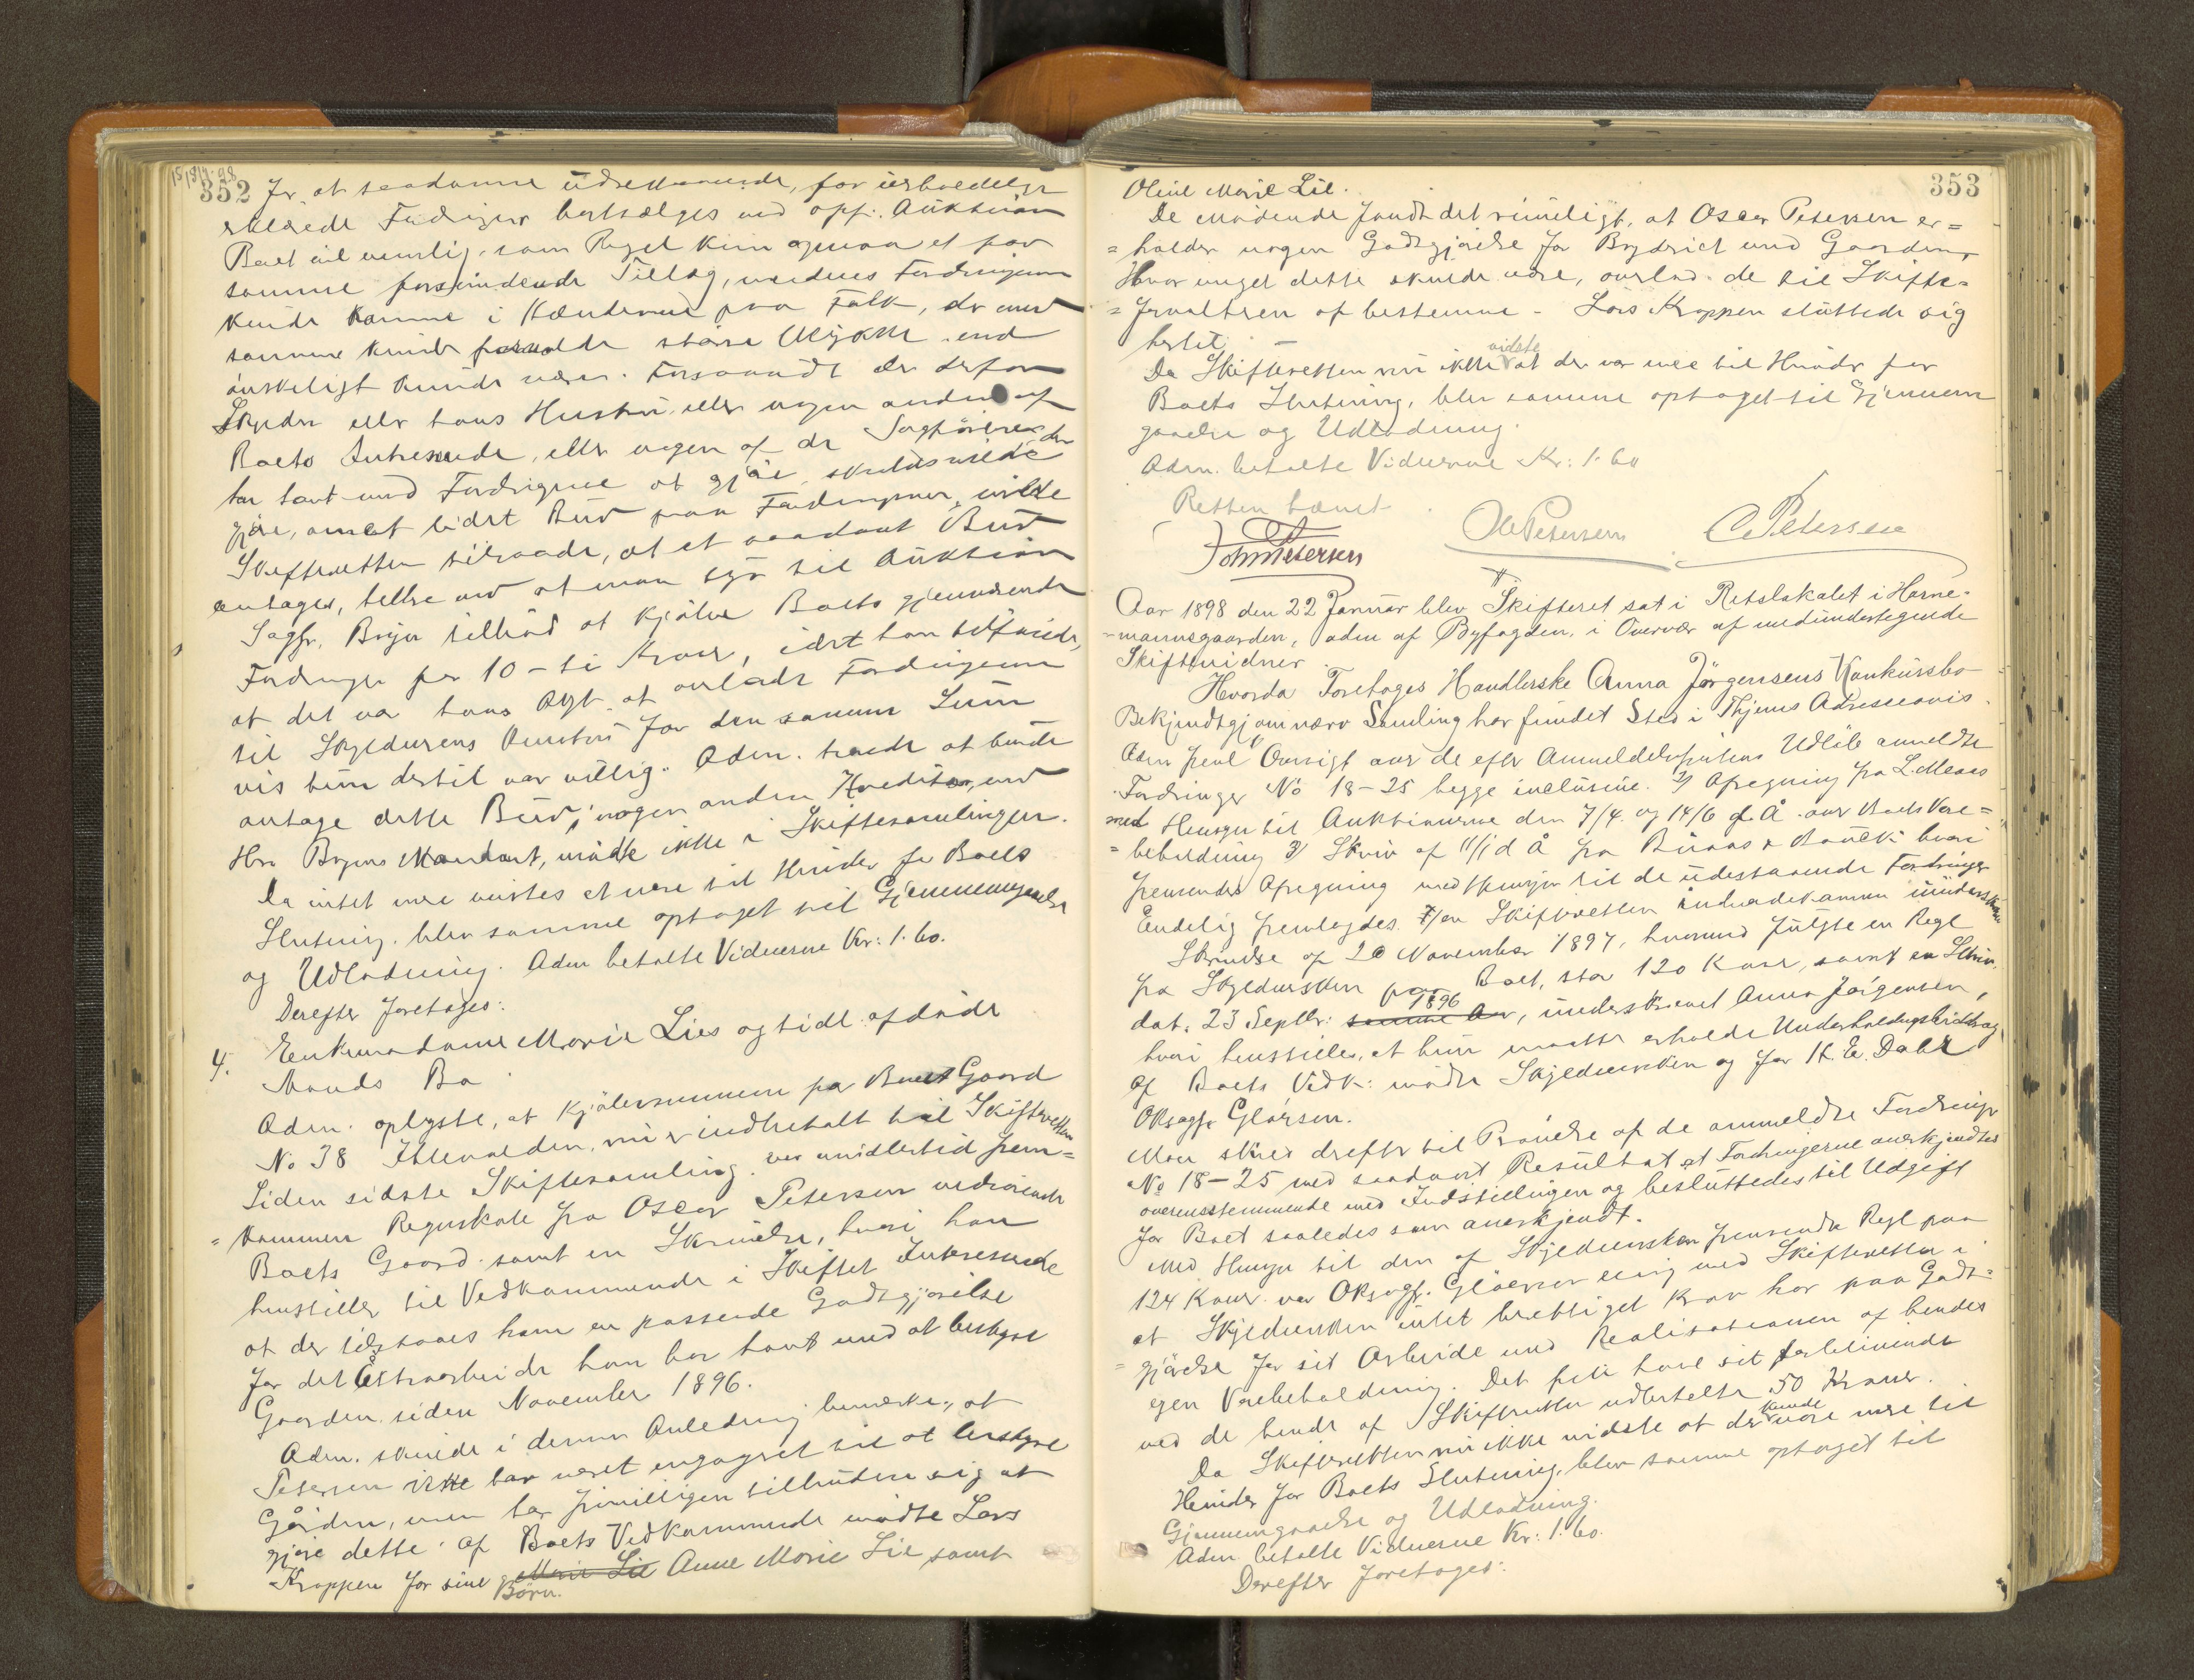 15/1 98
352
for at saadanne udestaaende, for uerholdelige
erklærede Fordringer bortsælges ved off. Auktion
Boet vil nemlig, som Regel kun opnaa et par
samme forsvindende Tillæg, medens Fordringerne
kunde komme i Hænderne paa Folk, der med
samme kunde forvolde større Ulykke end
ønskeligt kunde være. Forsaavidt der derfor
Skyldn eller hans Hustru eller nogen anden af
Boets Interessende, eller nogen af de Sagførere der
har havt med Fordrigerne at gjøre, skulde vilde
gjøre, omend lidet Bud paa Fordringerne, vilde
Skifteretten tilraade, at et saadant Bud
antages, heller end at man skr til Auktion
Sagfr. Bryn tilbød at kjøbe Boets gjenværende
Fordringer for 10 - ti Kroner, idet han tilføiede,
at det var hans Agt at overlade Fordringerne
til Skyldnerens Hustru for den samme Sum
vis hun dertil var villig. Adm. troede at burde
antage dette Bud; nogen anden Kreditor, end
Hr. Bryns Mandant, mødte ikke i Skiftesamlingen.
Da intet mere vistes at være til Hinder for Boets
Slutning, blev samme optaget til Gjennemgaaelse
og Udlodning. Adm betalte Vidnerne Kr: 1.60.
Derefter foretoges:
4. Enkemadame Marie Lies og tidl. afdøde
Mands Bo.
Adm. oplyste, at Kjøbesummen for Boets Gaard
No 38 Ihlevolden, nu er indbetalt til Skifteretten
Siden sidste Skiftesamling var imidlertid frem=
=kommen Regnskab fra Oscar Petersen vedrørende
Boets Gaard samt en Skrivelse, hvori han
henstiller til Vedkommende i Skiftet Interessende
at der tilstaaes ham en passende Godtgjørelse
for det Extraarbeide han har havt med at bestyre
Gaarden siden November 1896.
Adm. skulde i denne Anledning bemærke, at
Petersen ikke har været engageret til at bestyre
Gården, men har frivilligen tilbuden sig at
gjøre dette. Af Boets Vedkommende mødte Lars
Kroppen for sine Børn. Marie Lie Anne Marie Lie samt
353
Oline Marie Lie.
De mødende fandt det rimeligt, at Oscar Petersen er=
=holder nogen Godtgjørelse for Bryderiet med Gaarden,
Hvor meget dette skulde være, overlod de til Skifte=
=forvalteren at bestemme. Lars Kroppen sluttede sig
hertil.
Da Skifteretten nu ikke vidste at der var mere til Hinder for
Boets Slutning, blev samme optaget til Gjennem
gaaelse og Udlodning.
Adm. betalte Vidnerne Kr: 1.60
Retten hævet
John Petersen
Ole Petersen
C. Petersen
Aar 1898 den 22 Januar blev Skifteret sat i Retslokalet i Horne=
=mannsgaarden, adm af Byfogden, i Overvær af medundertegnede
Skiftevidner.
Hvorda Foretoges Handlerske Anna Jørgensens Konkursbo
Bekjendtgj om nærv Samling har fundet Sted i Thjems Adresseavis.
Adm freml Oversigt over de efter Anmeldelsesfristens Udløb anmeldte
Fordringer No 18-25 begge inclusive. 2/ Afregning fra L. Mears
med Hensyn til Auktionerne den 7/4. og 14/6 f. Å. over Boets Vare=
=beholdning 3/ Skriv af 11/1 d Å fra Buaas & Bauck hvori
fremsendes Afregning med Hensyn til de udestaaende Fordringer
Endelig fremlagdes 4/ en Skifteretten ihændekommen underskreven
Skrivelse af 20 November 1897, hvormed fulgte en Regl
fra Skyldnersken paa Boet, stor 120 Kroner, samt en Skriv.
dat. 23 Septbr: samme Aar 1896, underskrevet Anna Jørgensen,
hvori henstilles, at hun maatte erholde Underholdningsbidrag
Af Boets Vedk: mødte Skyldnersken og for H. E. Dahl
Oksagfr Gløersen.
Man skred derefter til Prøvelse af de anmeldte Fordringer
No 18-25 med saadant Resultat at Fordringerne anerkjendtes
overensstemmende med Indstillingen og besluttedes til Udgift
for Boet saaledes som anerkjendt.
Med Hensyn til den af Skyldnersken fremsendte Regl paa
124 Kroner var Oksagfr. Gløersen enig med Skifteretten i
at Skyldnersken intet berettiget Krav har paa Godt=
=gjørelse for sit Arbeide med Realisationen af hendes
egen Varebeholdning. Det fik have sit forblivende
ved de hende af Skifteretten udbetalte 50 Kroner.
Da Skifteretten nu ikke vidste at der kunde være mere til
Hinder for Boets Slutning, blev samme optaget til
Gjennemgaaelse og Udlodning.
Adm betalte Vidnerne Kr: 1.60.
Derefter foretoges: